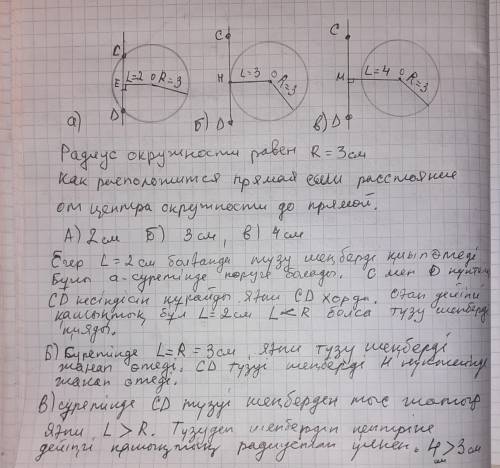 C C C
L=2 O R=3 L=3 O R=3 L=4 O R=3
E H M
D D D
а) б) в)
Радиус окружности равен R = 3 см
Как расположится прямая если расстояние
от центра окружности до прямой.
А) 2 см Б) 3 см, в) 4 см
Егер L = 2 см болғанда түзу шеңберді қиып өтеді
Бұны а-суретінде көруге болады. C мен D нүктелі
CD кесіндісін құрайды яғни CD хорда. Оған дейінгі
қашықтық бұл L = 2 см L < R болса түзу шеңберді
қияды.
Б) Суретінде L = R = 3 см, яғни түзу шеңберді
жанап өтеді. CD түзуі шеңберді H нүктесінде
жанап өтеді.
В) суретінде CD түзуі шеңберден тыс жатыр
яғни L > R. Түзуден шеңбердің центріне
дейінгі қашықтық радиустан үлкен. 4 см > 3 см